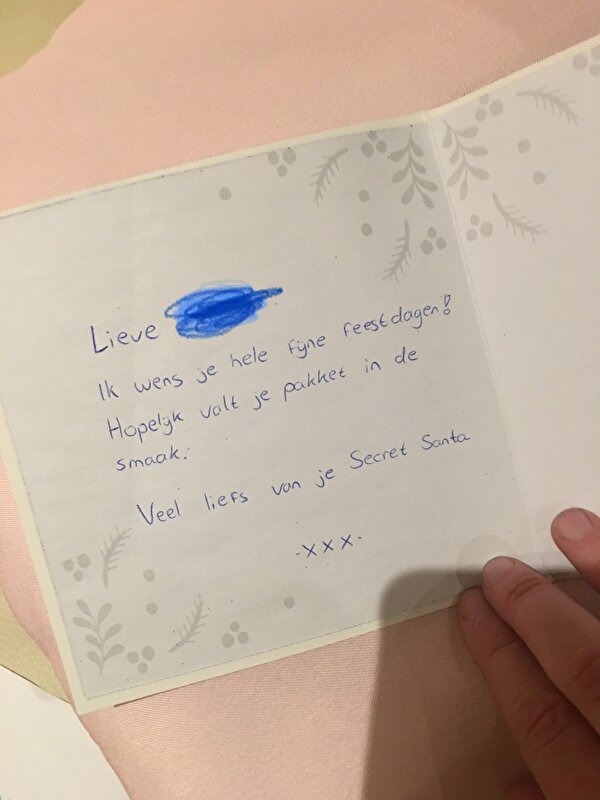 Lieve
Ik wens je hele fijne feestdagen!
Hopelijk valt je pakket in de
smaak.
Veel liefs van je Secret Santa
-xxx-